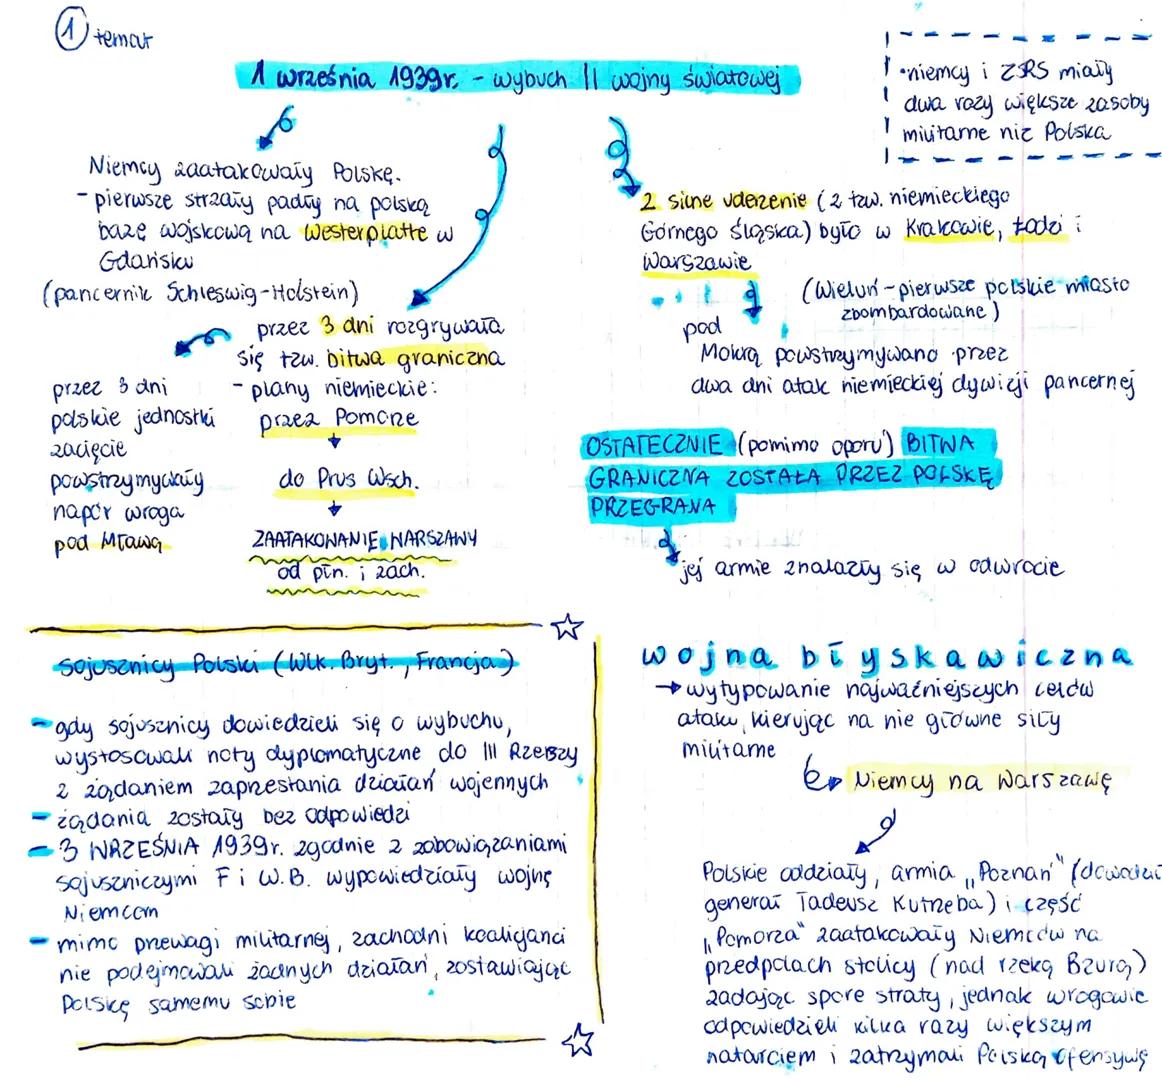 1 temat
1 września 1939r. - wybuch II wojny światowej
•niemcy i ZSRS miały
dwa razy większe zasoby
militarne niż Polska
Niemcy zaatakowały Polskę.
- pierwsze strzały padły na polską
bazę wojskową na Westerplatte w
Gdańsku
(pancernik Schleswig-Holstein)
przez 3 dni rozgrywała
się tzw. bitwa graniczna
- plany niemieckie:
przez Pomorze
do Prus Wsch.
ZAATAKOWANIE WARSZAWY
od płn. i zach.
przez 3 dni
polskie jednostki
zacięcie
powstrzymywały
napór wroga
pod Mławą
2 silne uderzenie (z tzw. niemieckiego
Górnego Śląska) było w Krakowie, Łodzi i
Warszawie
(Wieluń - pierwsze polskie miasto
zbombardowane)
pod
Mokrą powstrzymywano przez
dwa dni atak niemieckiej dywizji pancernej
OSTATECZNIE (pomimo oporu) BITWA
GRANICZNA ZOSTAŁA PRZEZ POLSKĘ
PRZEGRANA
jej armie znalazły się w odwrocie
Sojusznicy Polski (Wlk. Bryt., Francja)
- gdy sojusznicy dowiedzieli się o wybuchu,
wystosowali noty dyplomatyczne do III Rzeszy
z żądaniem zaprzestania działań wojennych
- żądania zostały bez odpowiedzi
- 3 WRZEŚNIA 1939r. zgodnie z zobowiązaniami
sojuszniczymi F i W.B. wypowiedziały wojnę
Niemcom
- mimo przewagi militarnej, zachodni koalicjanci
nie podejmowali żadnych działań, zostawiając
Polskę samemu sobie
wojna błyskawiczna
→ wytypowanie najważniejszych celów
ataku, kierując na nie główne siły
militarne
Niemcy na Warszawę
Polskie oddziały, armia „Poznań" (dowodzi
generał Tadeusz Kutrzeba) i część
„Pomorza" zaatakowały Niemców na
przedpolach stolicy (nad rzeką Bzurą)
zadając spore straty, jednak wrogowie
odpowiedzieli kilka razy większym
natarciem i zatrzymali Polską ofensywę